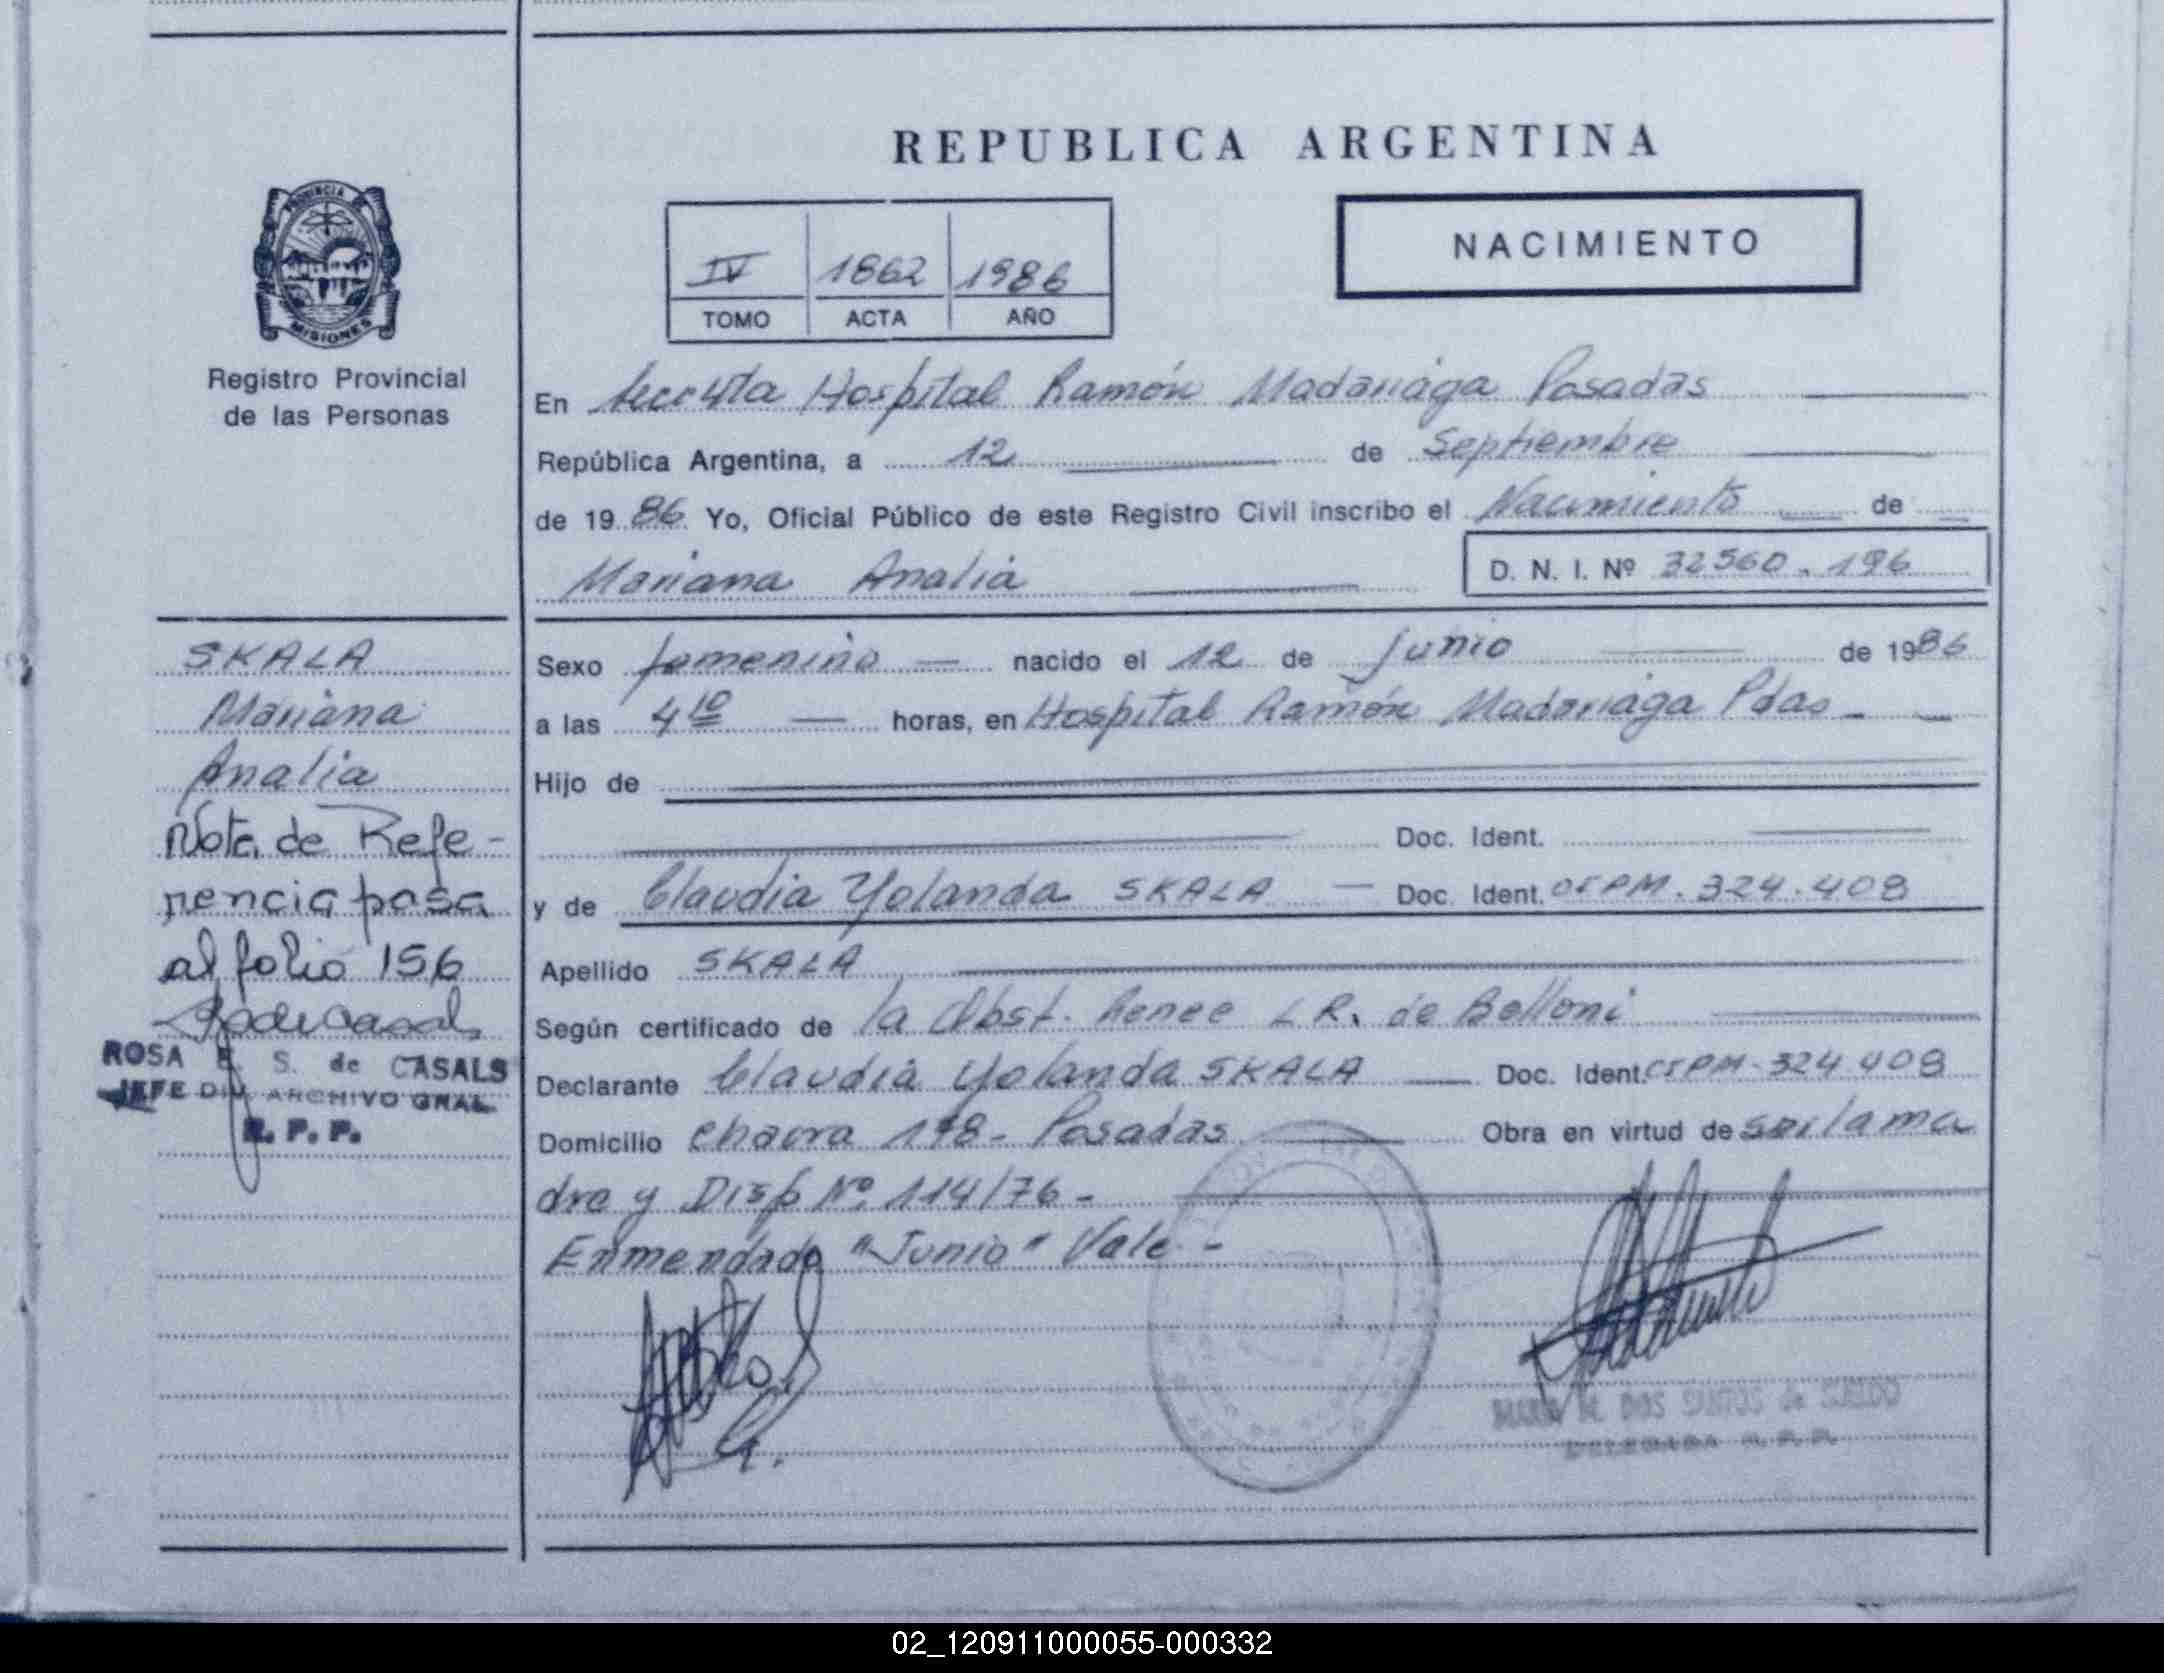 REPUBLICA ARGENTINA
NACIMIENTO
IV 1862 1986
TOMO ACTA AÑO
PROVINCIA DE
MISIONES
Registro Provincial
de las Personas
En Secc 4ta Hospital Ramón Madariaga Posadas
República Argentina, a 12 de Septiembre
de 1986 Yo, Oficial Público de este Registro Civil inscribo el Nacimiento de
Mariana Analia D. N. I. Nº 32560.196
SKALA
Mariana
Analia
Nota de Refe-
rencia pasa
al folio 156
ROSA E. S. de CASALS
JEFE DIV. ARCHIVO GRAL.
R. P. P.
Sexo femenino nacido el 12 de junio de 1986
a las 4 10 horas, en Hospital Ramón Madariaga Pdas
Hijo de
Doc. Ident.
y de Claudia Yolanda SKALA Doc. Ident. 324.408
Apellido SKALA
Según certificado de la Obst. Renee L R. de Belloni
Declarante Claudia Yolanda SKALA Doc. Ident. 324 408
Domicilio chacra 178- Posadas Obra en virtud de ser la ma
dre y Disp Nº 114/76-
Enmendado "Junio" Vale-
DOS SANTOS de
DELEGADA R. P. P.
02_120911000055-000332